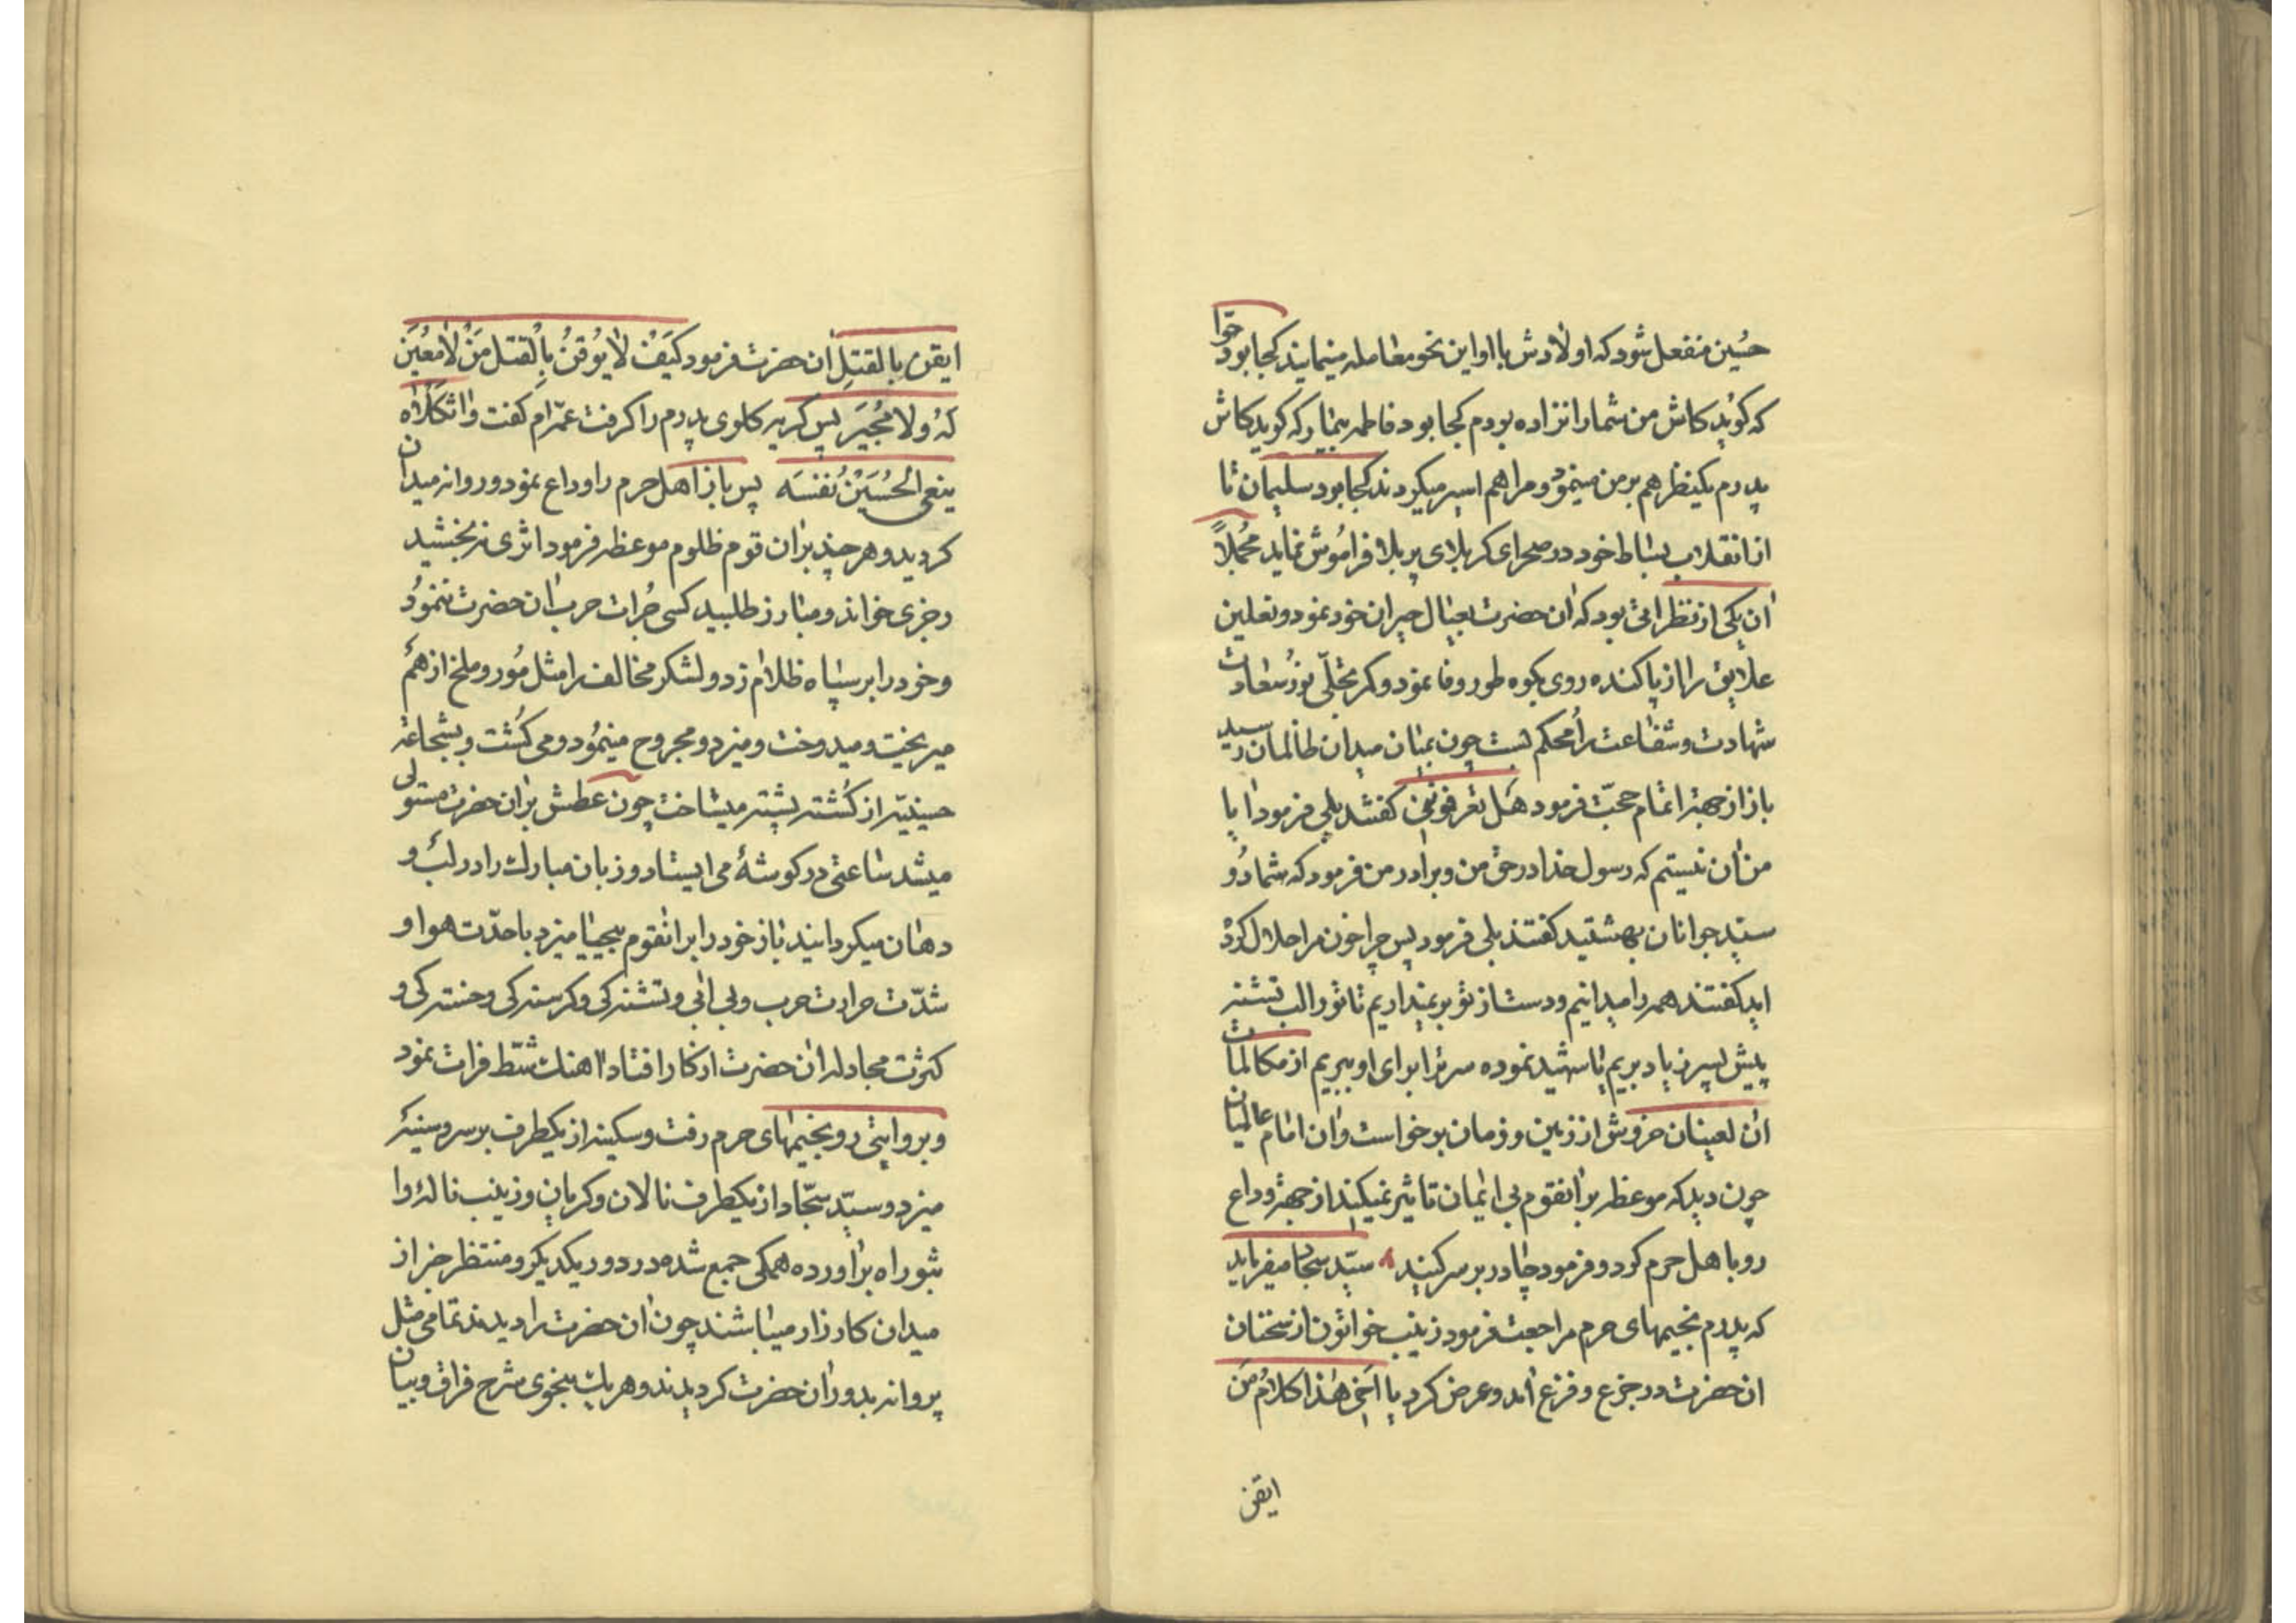 حسین منفعل شود که اولادش با او این نحو معامله مینمایند کجا بود حوّا
که کوید کاش من شما را نزاده بودم کجا بود فاطمه بیمار که کوید کاش
پدرم یکنظر هم بر من مینمود و مرا هم اسیر میکردند کجا بود سلیمان تا
از انقلاب بساط خود در صحرای کربلای پر بلا فراموش نماید مجملاً
ان یکی از نظراتی بود که ان حضرت بعیال حیران خود نمود و نعلین
علایق را از پا کنده روی بکوه طور وفا نمود و کمر تجلّی نور سعادت
شهادت و شفاعت را محکم بست چون بمیان میدان ظالمان رسید
باز از جهة اتمام حجّت فرمود هَل تعرفونی کفتند بلی فرمود ایا
من ان نیستم که رسول خدا در حق من و برادر من فرمود که شما دُو
سیّد جوانان بهشتید کفتند بلی فرمود پس چرا خون مرا حلال کرده
اید کفتند همه را میدانیم و دست از تو بر نمیداریم تا تو را لب تشنه
پیش پسر زیاد بریم یا شهید نموده سر ترا برای او ببریم از مکالمات
ان لعینان خروش از زمین و زمان برخواست و ان امام عالمیان
چون دید که موعظه بر انقوم بی ایمان تاثیر نمیکند از جهة وداع
رو باهل حرم کرد و فرمود چادر بر سر کنید سیّد سجاد میفرماید
که پدرم بخیمهای حرم مراجعت فرمود زینب خواتون از سخنان
ان حضرت در جزع و فزع آمد و عرض کرد یا اَخی هٰذا کلامُ مَن
ایقن
ایقن بالقتلِ ان حضرت فرمود کَیفَ لا یُوقنُ بِالقتل مَنْ لا مُعینَ
لهُ ولا مُجیرَ پس کریه کلوی پدرم را کرفت عمّه ام کفت واثکلاه
ینعی الحُسَیْنُ نَفْسَه پس باز اهل حرم را وداع نمود و روانه میدان
کردید و هر چند بر ان قوم ظلوم موعظه فرمود اثری نه بخشید
رجزی خواند و مبارز طلبید کسی جُرات حرب ان حضرت ننمودُ
و خود را بر سپاه ظلام زد و لشکر مخالف را مثل مُور و ملخ از هم
میریخت و میدوخت و میزد و مجروح مینمُود و می کُشت و بشجاعة
حسینیّه از کُشته پشته میساخت چون عطش بر ان حضرت مستولی
میشد ساعتی در کوشهٔ می ایستاد و زبان مبارك را در لب و
دهان میکردانید باز خود را بر انقوم بیحیا میزد با حدّت هوا و
شدّت حرارت حرب و بی ابی و تشنه کی و کرسنه کی و خسته کی و
کثرت مجادله ان حضرت از کار افتاد اهنك شطّ فرات نمود
و بروایتی رو بخیمهای حرم رفت و سکینه از یکطرف بر سر و سینه
میزد و سیّد سجّاد از یکطرف نالان و کریان و زینب ناله وا
ثبوراه بر اورده همکی جمع شده در دور یکدیکر و منتظر خبر از
میدان کارزار میباشند چون ان حضرت را دیدند تمامی مثل
پروانه بدور ان حضرت کردیدند و هر یك بنحوی شرح فراق و بیان